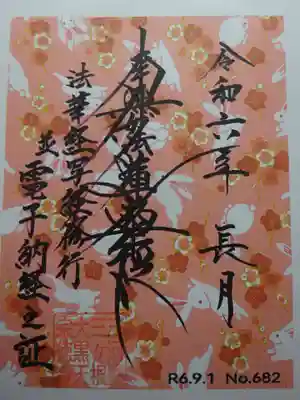 令和六年　長月
法蓮華経
法華経写経修行
並電子納経之証
R6.9.1 No.682